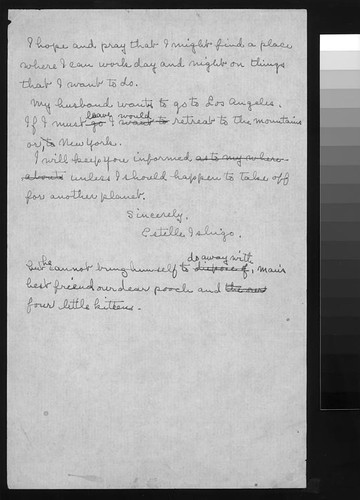 I hope and pray that I might find a place
where I can work day and night on things
that I want to do.
My husband wants to go to Los Angeles.
leave, would
If I must go I want to retreat to the mountains
or, to New York.
I will keep you informed as to my where-
abouts unless I should happen to take off
for another planet.
Sincerely,
Estelle Ishigo.
do away with
he
But cannot bring himself to dispose of, man's
best friend our dear pooch and the our
four little kittens.